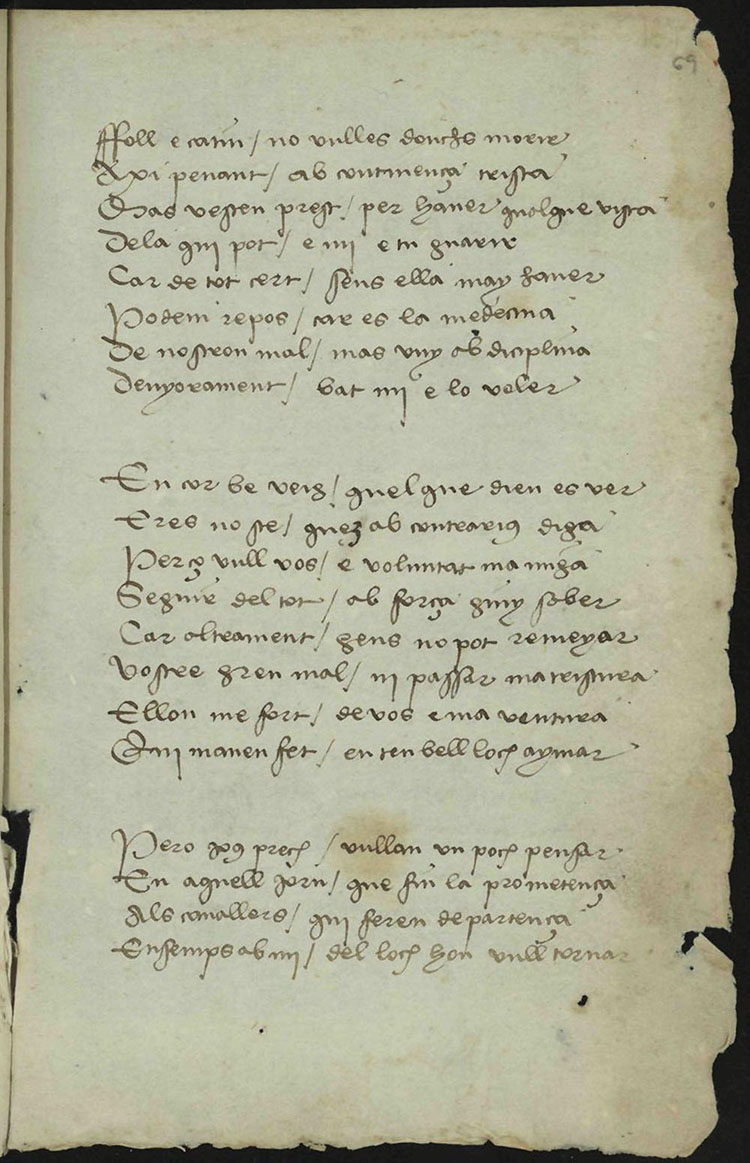 69
Ffoll e catiu / no vulles donchs morir
Axi penant / ab continença trista
Mas vesten prest / per haver qualque vista
Dela qui pot / e mi e tu guarir
Car de tot cert / sens ella may haver
Podem repos / car es la medecina
De nostron mal / mas vuy ab diciplina
Denyorament / bat mi e lo voler
En cor be veig / quel que dien es ver
E res no ste / quez ab contrariꝯ diga
Perço vull vos / e voluntat ma miga
Seguir del tot / ab força giny saber
Car altrament / gens no pot remeyar
Vostre gren mal / ni passar ma tristura
E llou me fort / de vos e ma ventura
Qui maven fet / en ten bell loch aymar
Pero ioꝯ prech / vullau un poch pensar
En aquell iorn / que fiu la prometença
Als cavallers / qui feren departença
Ensemps ab mi / del loch hon vull tornar